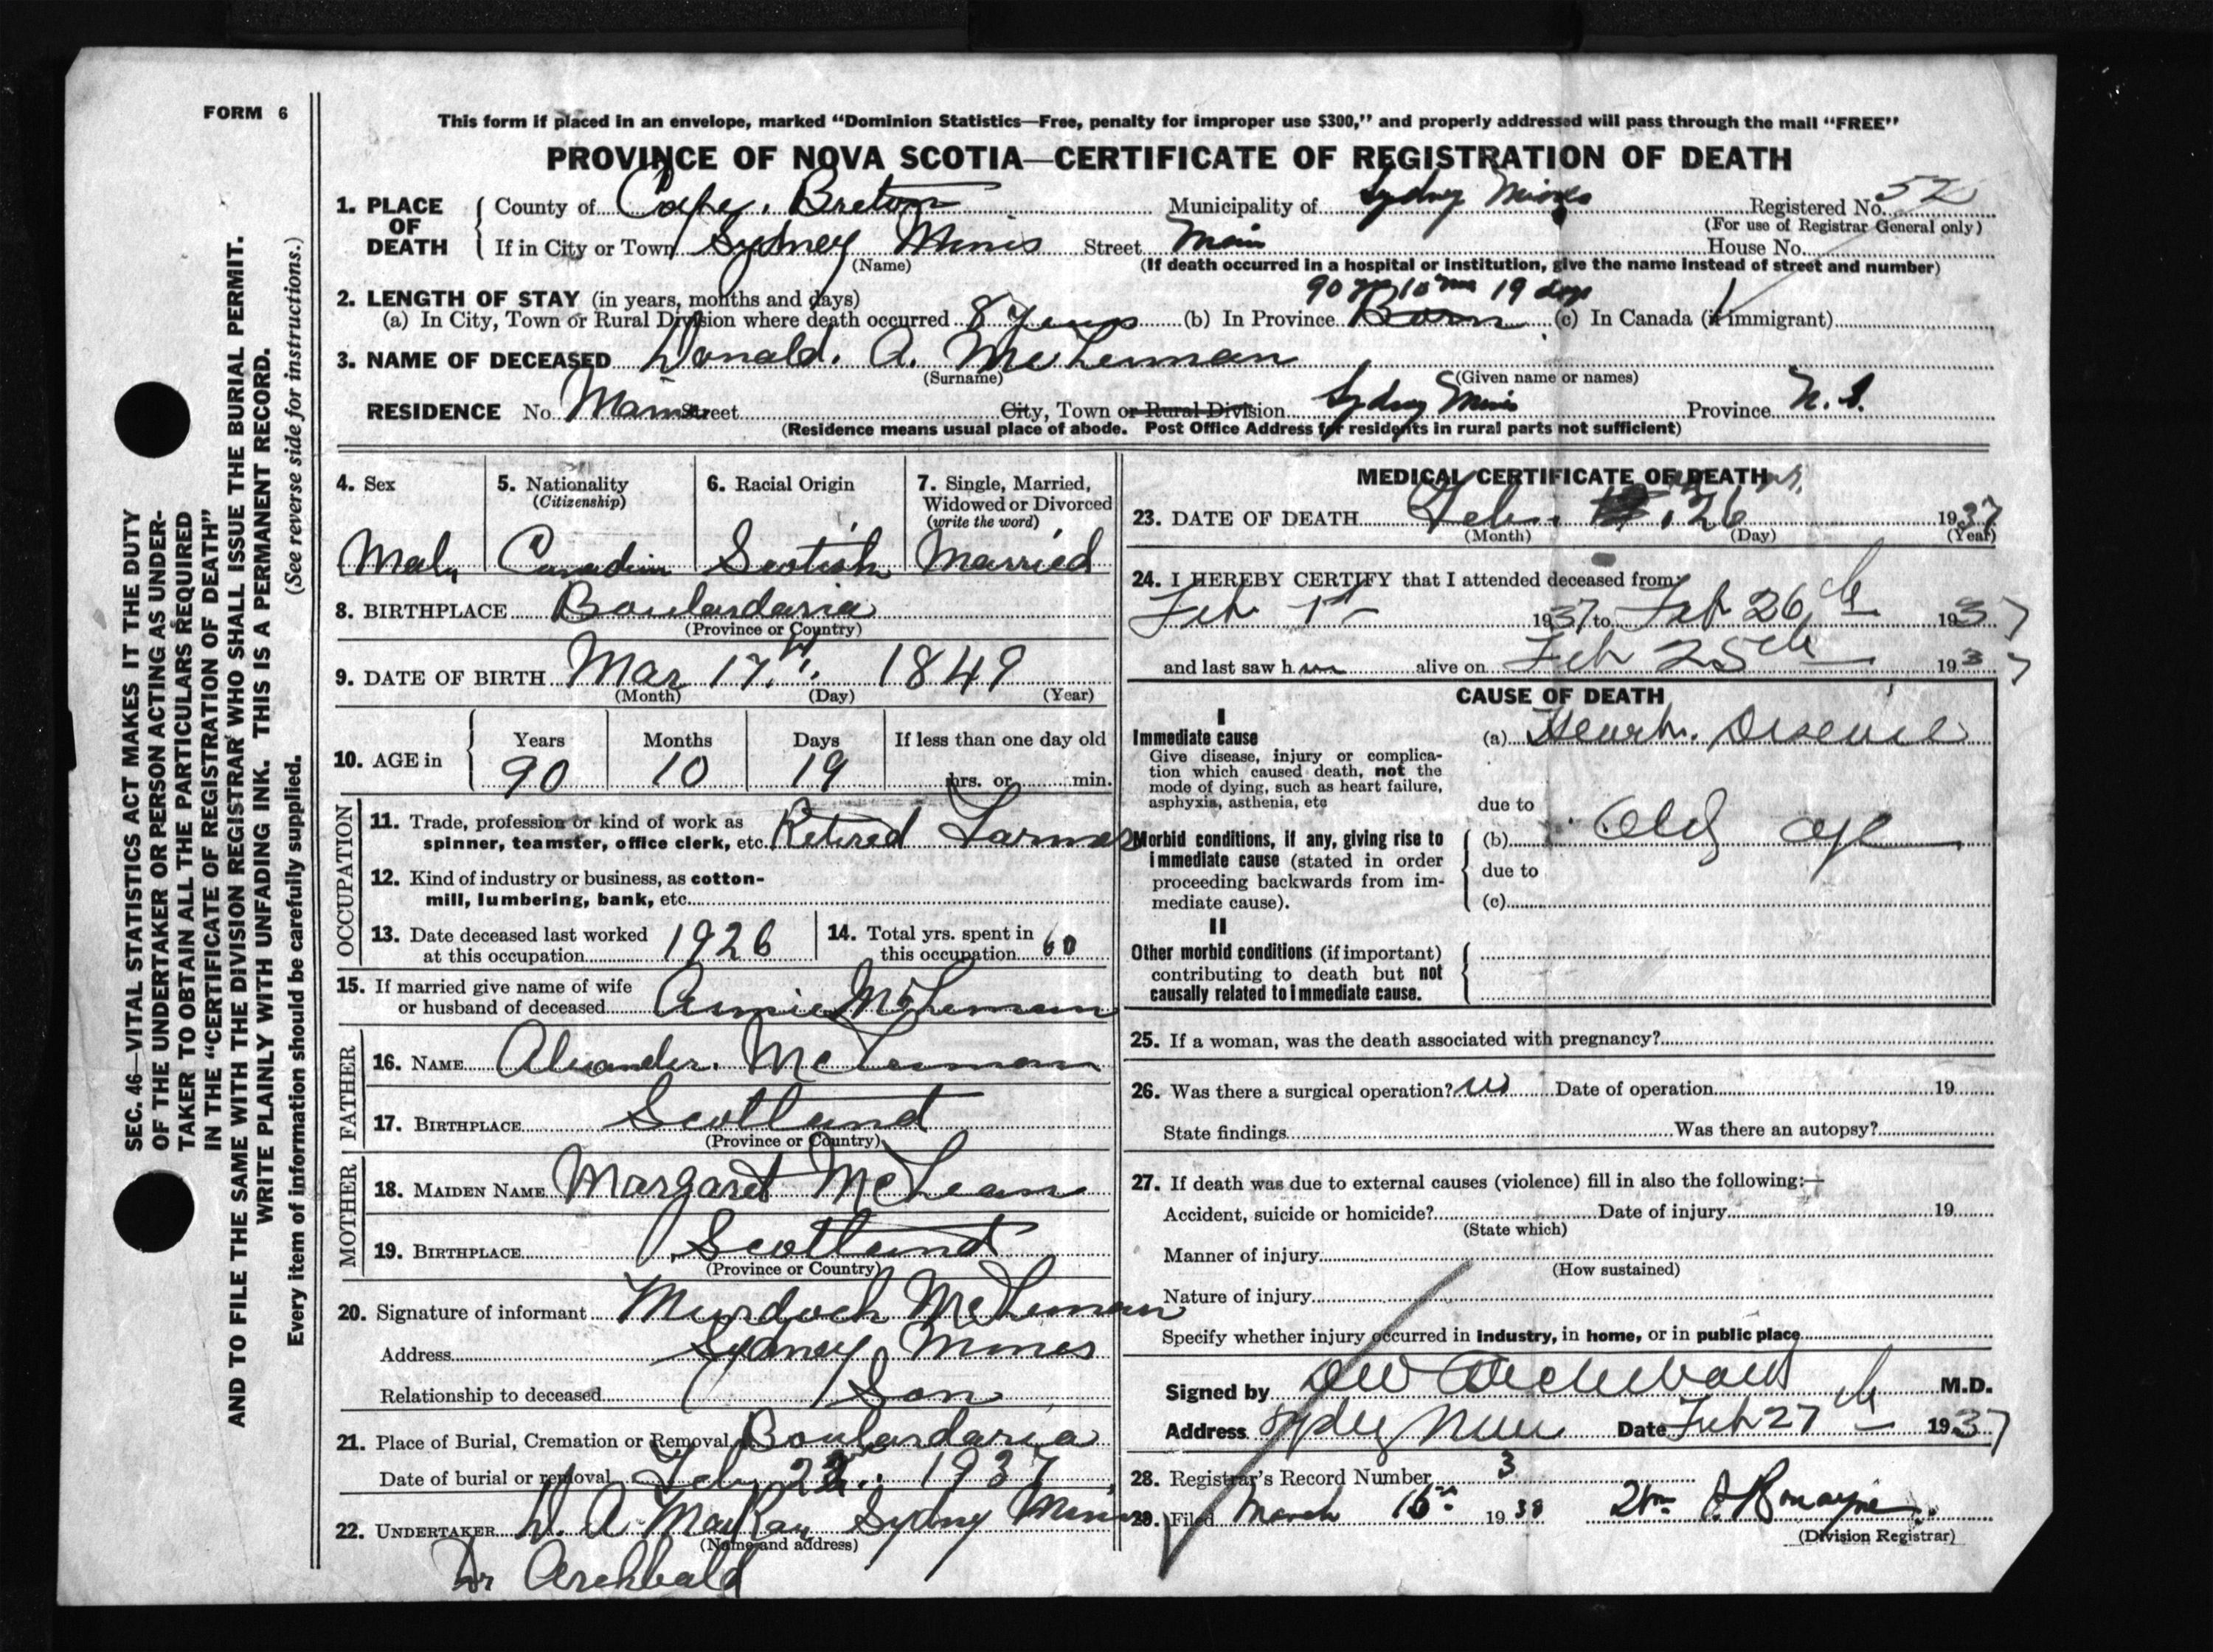 FORM 6
This form if placed in an envelope, marked "Dominion Statistics—Free, penalty for improper use $300," and properly addressed will pass through the mail "FREE"
PROVINCE OF NOVA SCOTIA—CERTIFICATE OF REGISTRATION OF DEATH
1. PLACE OF DEATH
County of Cape. Breton Municipality of Sydney Mines Registered No. 52
(For use of Registrar General only)
If in City or Town Sydney Mines Street Main House No.
(Name) (If death occurred in a hospital or institution, give the name instead of street and number)
90 yrs 10 ms 19 days
2. LENGTH OF STAY (in years, months and days)
(a) In City, Town or Rural Division where death occurred 8 years (b) In Province Born (c) In Canada (if immigrant)
3. NAME OF DECEASED Donald. A. McLennan
(Surname) (Given name or names)
RESIDENCE No. Main Street City, Town or Rural Division Sydney Mines Province N.S.
(Residence means usual place of abode. Post Office Address for residents in rural parts not sufficient)
4. Sex 5. Nationality 6. Racial Origin 7. Single, Married,
(Citizenship) Widowed or Divorced
(write the word)
Male Canadian Scotish Married
8. BIRTHPLACE Boulardaria
(Province or Country)
9. DATE OF BIRTH Mar 17th. 1849
(Month) (Day) (Year)
10. AGE in
Years Months Days If less than one day old
90 10 19 hrs. or min.
OCCUPATION
11. Trade, profession or kind of work as
spinner, teamster, office clerk, etc. Retired Farmer
12. Kind of industry or business, as cotton-
mill, lumbering, bank, etc.
13. Date deceased last worked
at this occupation 1926
14. Total yrs. spent in
this occupation 60
15. If married give name of wife
or husband of deceased Annie McLennan
FATHER
16. NAME Alexander. McLennan
17. BIRTHPLACE Scotland
(Province or Country)
MOTHER
18. MAIDEN NAME Margaret McLean
19. BIRTHPLACE Scotland
(Province or Country)
20. Signature of informant Murdoch McLennan
Address Sydney Mines
Relationship to deceased Son
21. Place of Burial, Cremation or Removal Boulardaria
Date of burial or removal Feb. 1937
22. UNDERTAKER D. A. MacKay Sydney Mines
(Name and address)
Dr Archbald
MEDICAL CERTIFICATE OF DEATH
23. DATE OF DEATH Feb. 26 1937
(Month) (Day) (Year)
24. I HEREBY CERTIFY that I attended deceased from:
Feb 1st 1937 to Feb 26th 1937
and last saw him alive on Feb 25th 1937
CAUSE OF DEATH
I
Immediate cause (a) Heart. Disease
Give disease, injury or complica-
tion which caused death, not the
mode of dying, such as heart failure,
asphyxia, asthenia, etc
due to
Morbid conditions, if any, giving rise to (b) Old age
immediate cause (stated in order
proceeding backwards from im- due to
mediate cause). (c)
II
Other morbid conditions (if important)
contributing to death but not
causally related to immediate cause.
25. If a woman, was the death associated with pregnancy?
26. Was there a surgical operation? no Date of operation 19
State findings Was there an autopsy?
27. If death was due to external causes (violence) fill in also the following:—
Accident, suicide or homicide? Date of injury 19
(State which)
Manner of injury
(How sustained)
Nature of injury
Specify whether injury occurred in industry, in home, or in public place
Signed by Archibald M.D.
Address Sydney Mines Date Feb 27th 1937
28. Registrar's Record Number 3
29. Filed March 1938
(Division Registrar)
SEC. 46—VITAL STATISTICS ACT MAKES IT THE DUTY
OF THE UNDERTAKER OR PERSON ACTING AS UNDER-
TAKER TO OBTAIN ALL THE PARTICULARS REQUIRED
IN THE "CERTIFICATE OF REGISTRATION OF DEATH"
AND TO FILE THE SAME WITH THE DIVISION REGISTRAR WHO SHALL ISSUE THE BURIAL PERMIT.
WRITE PLAINLY WITH UNFADING INK. THIS IS A PERMANENT RECORD.
Every item of information should be carefully supplied. (See reverse side for instructions.)